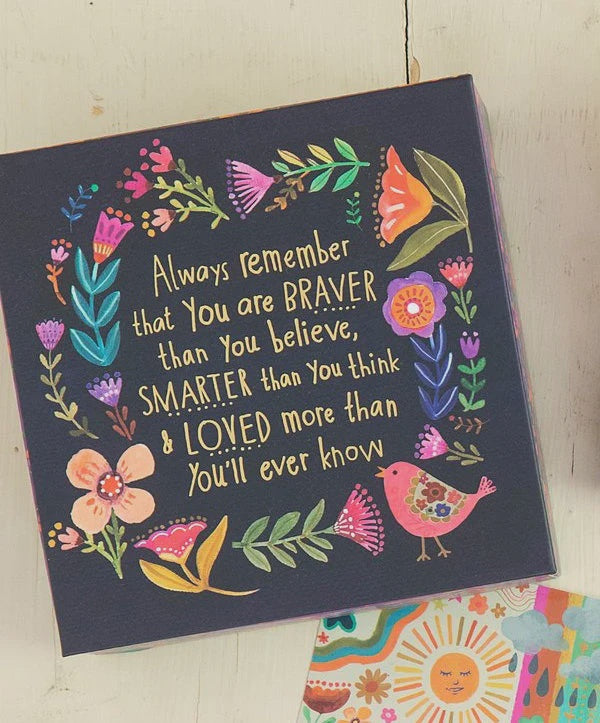 Always remember
that You are BRAVER
than You believe,
SMARTER than You think
& LOVED more than
You'll ever know